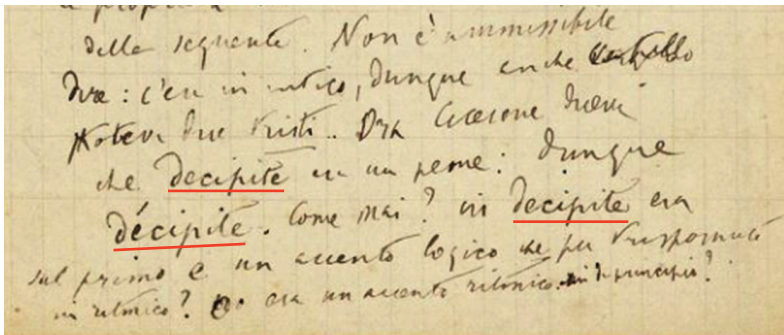 a proposi
della seguente. Non è ammissibile
dire: c'era in antico, dunque anche
poteva dire tristi.. Cicerone
che decipite era un peone: dunque
décipite. Come mai? in decipite era
sul primo e un accento logico che poi
in ritmico? era un accento ritmico. in principio?